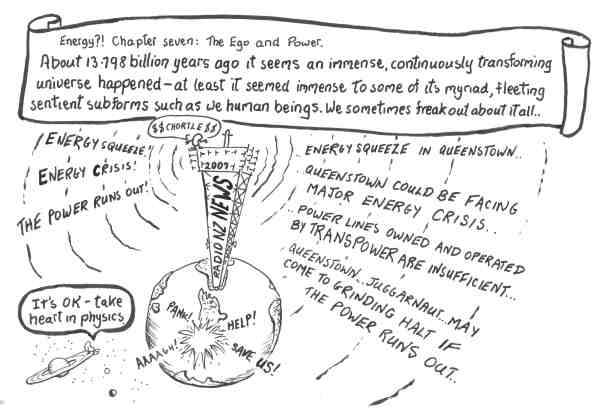 Energy?! Chapter seven: The Ego and Power.
About 13.798 billion years ago it seems an immense, continuously transforming
universe happened – at least it seemed immense to some of its myriad, fleeting
sentient subforms such as we human beings. We sometimes freak out about it all..
$$CHORTLE$$
! ENERGY SQUEEZE!
ENERGY CRISIS!
THE POWER RUNS OUT!
2007
RADIO NZ NEWS
ENERGY SQUEEZE IN QUEENSTOWN..
QUEENSTOWN COULD BE FACING
MAJOR ENERGY CRISIS..
..POWER LINES OWNED AND OPERATED
BY TRANSPOWER ARE INSUFFICIENT...
QUEENSTOWN...JUGGARNAUT...MAY
COME TO GRINDING HALT IF
THE POWER RUNS OUT..
It's OK - take
heart in physics
PANIC!
HELP!
AAAAGH!
SAVE US!